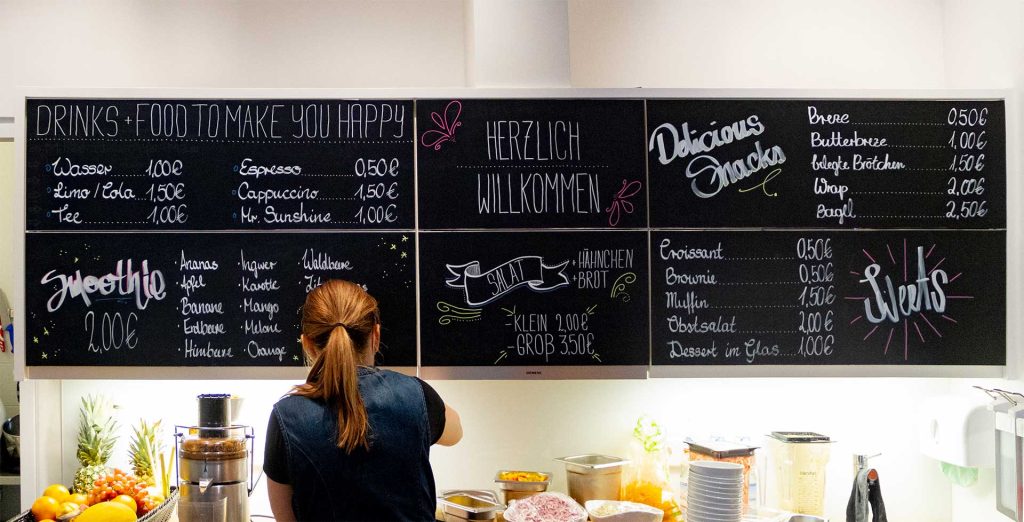 DRINKS + FOOD TO MAKE YOU HAPPY
Wasser 1,00€
Limo/Cola 1,50€
Tee 1,00€
Espresso 0,50€
Cappuccino 1,50€
Mr. Sunshine 1,00€
HERZLICH
WILLKOMMEN
Delicious
Snacks
Breze 0,50€
Butterbreze 1,00€
belegte Brötchen 1,50€
Wrap 2,00€
Bagel 2,50€
Smoothie
2,00€
· Ananas
· Apfel
· Banane
· Erdbeere
· Himbeere
· Ingwer
· Karotte
· Mango
· Melone
· Orange
· Waldbeere
SALAT
+ HÄHNCHEN
+ BROT
- KLEIN 2,00€
- GROß 3,50€
SIEMENS
Croissant 0,50€
Brownie 0,50€
Muffin 1,50€
Obstsalat 2,00€
Dessert im Glas 1,00€